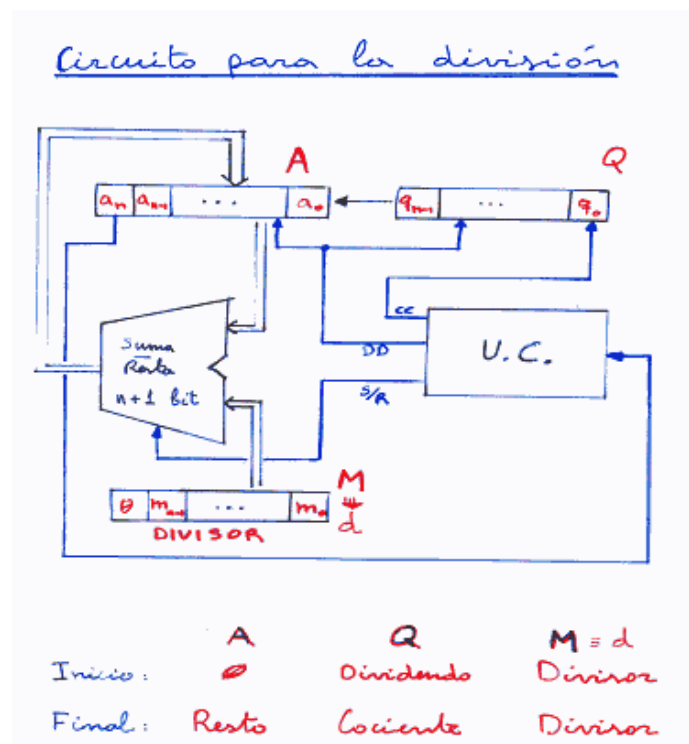 Circuito para la división
A Q
aₙ aₙ₋₁ ... a₀ qₙ₋₁ ... q₀
CC
Suma
Resta
n+1 bit
DD
S/R
U.C.
M
≡
d
0 mₙ₋₁ ... m₀
DIVISOR
A Q M ≡ d
Inicio: 0 Dividendo Divisor
Final: Resto Cociente Divisor